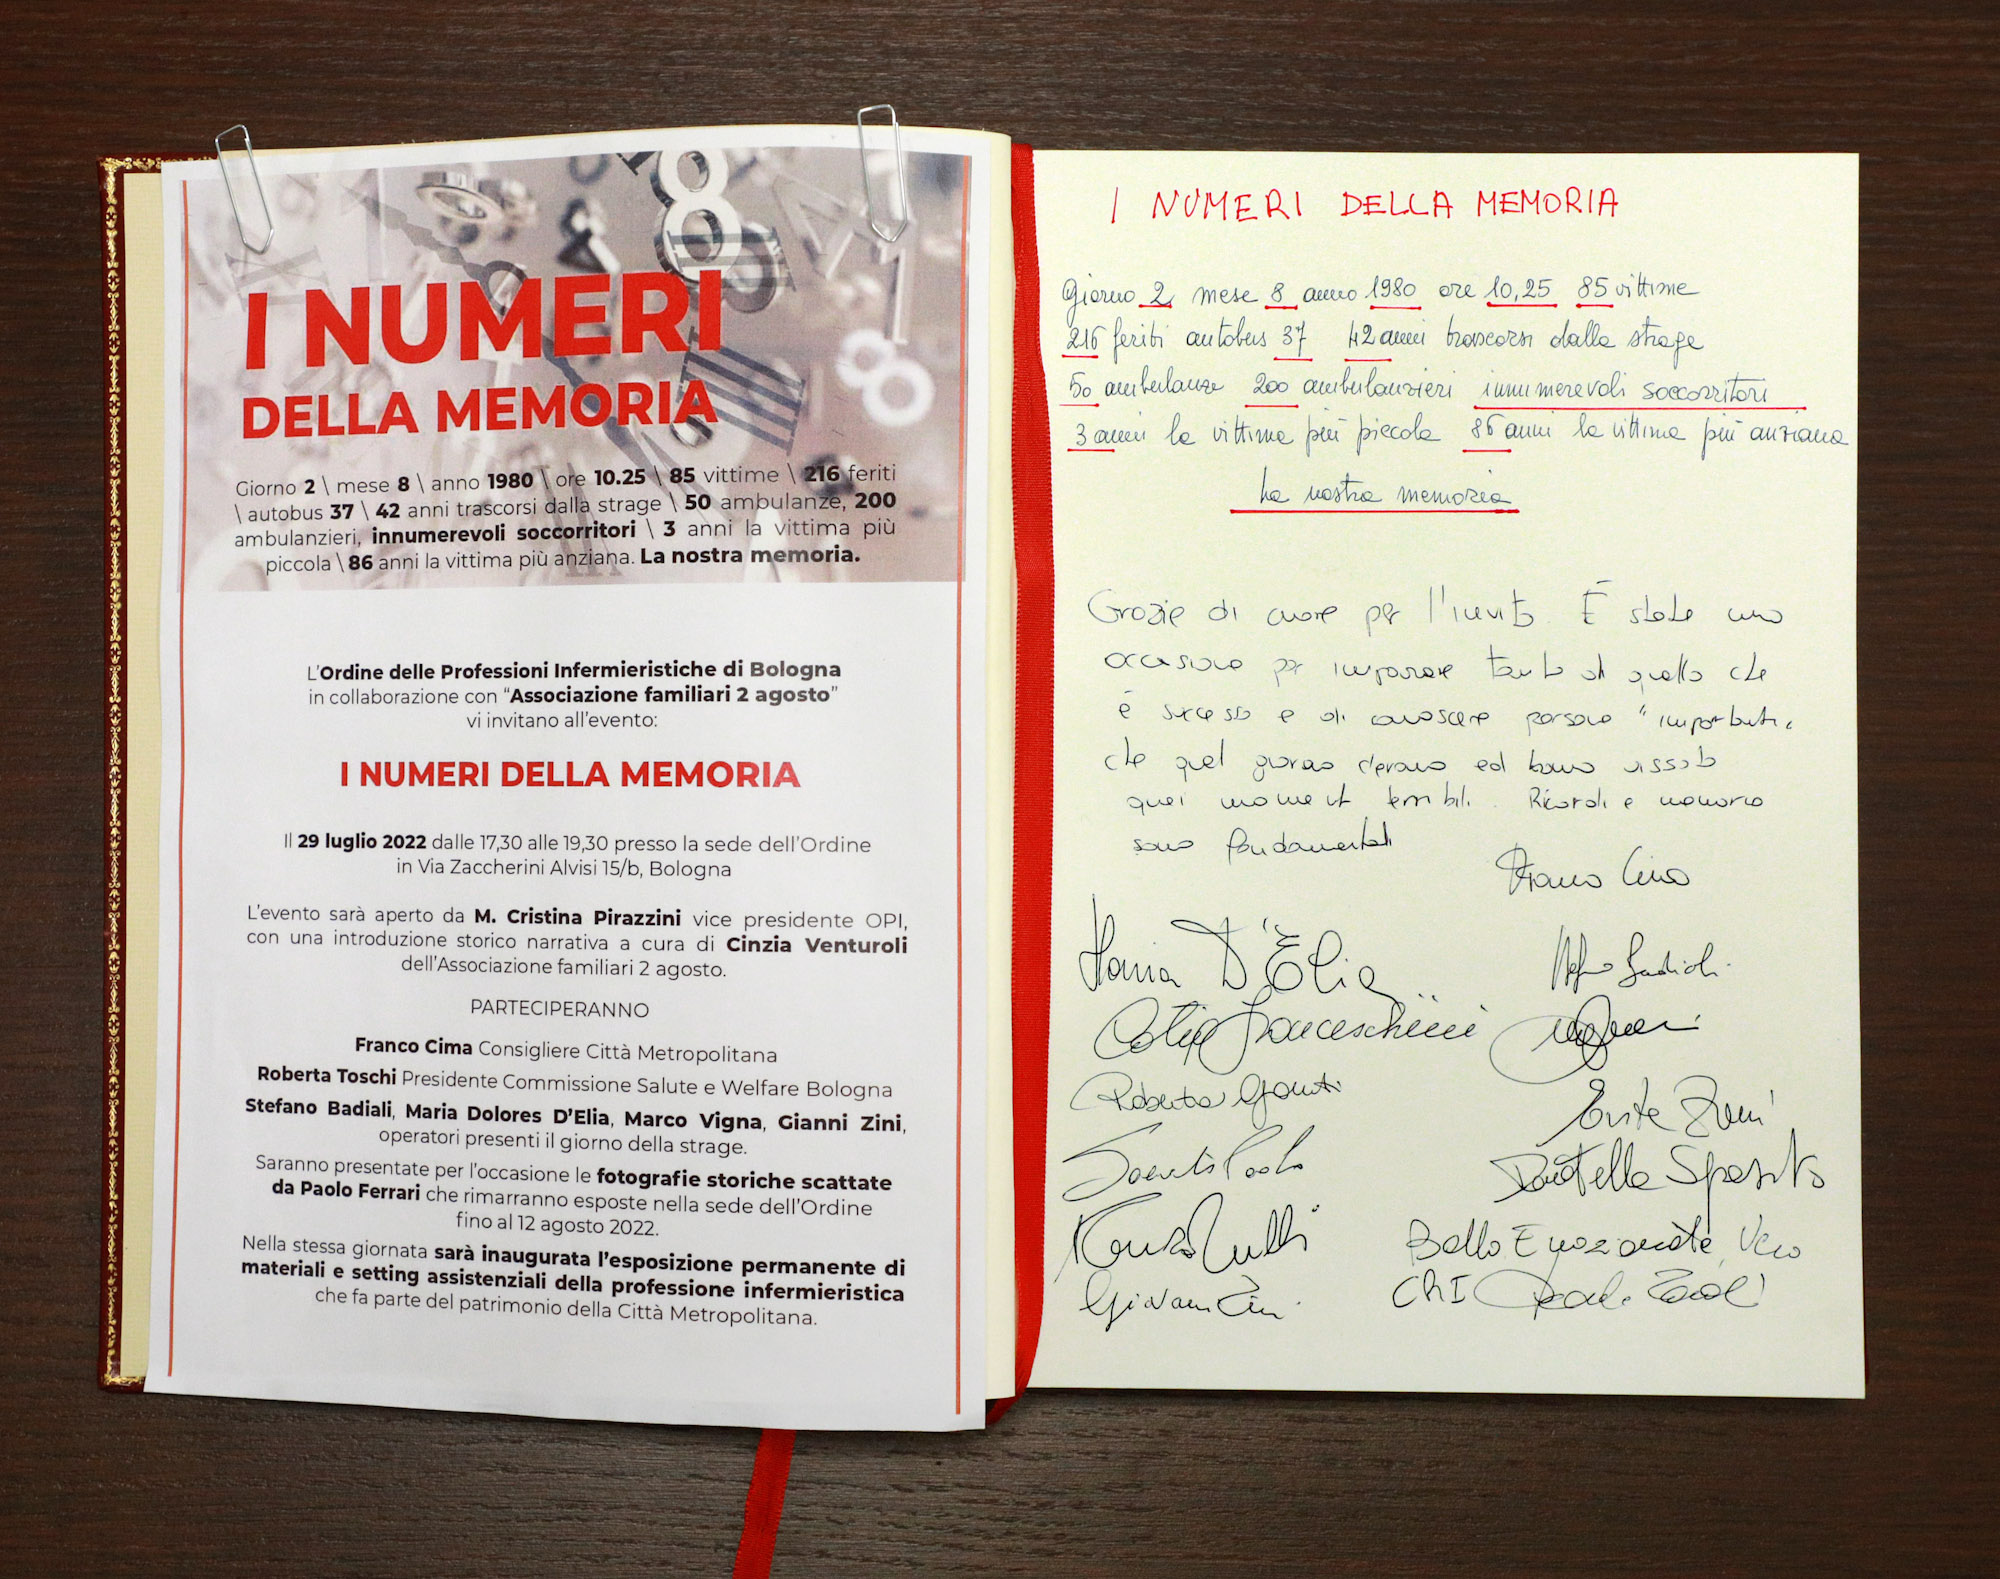 I NUMERI
DELLA MEMORIA
Giorno 2 \ mese 8 \ anno 1980 \ ore 10.25 \ 85 vittime \ 216 feriti
\ autobus 37 \ 42 anni trascorsi dalla strage \ 50 ambulanze, 200
ambulanzieri, innumerevoli soccorritori \ 3 anni la vittima più
piccola \ 86 anni la vittima più anziana. La nostra memoria.
L'Ordine delle Professioni Infermieristiche di Bologna
in collaborazione con “Associazione familiari 2 agosto”
vi invitano all'evento:
I NUMERI DELLA MEMORIA
Il 29 luglio 2022 dalle 17,30 alle 19,30 presso la sede dell'Ordine
in Via Zaccherini Alvisi 15/b, Bologna
L'evento sarà aperto da M. Cristina Pirazzini vice presidente OPI,
con una introduzione storico narrativa a cura di Cinzia Venturoli
dell'Associazione familiari 2 agosto.
PARTECIPERANNO
Franco Cima Consigliere Città Metropolitana
Roberta Toschi Presidente Commissione Salute e Welfare Bologna
Stefano Badiali, Maria Dolores D'Elia, Marco Vigna, Gianni Zini,
operatori presenti il giorno della strage.
Saranno presentate per l'occasione le fotografie storiche scattate
da Paolo Ferrari che rimarranno esposte nella sede dell'Ordine
fino al 12 agosto 2022.
Nella stessa giornata sarà inaugurata l'esposizione permanente di
materiali e setting assistenziali della professione infermieristica
che fa parte del patrimonio della Città Metropolitana.
I NUMERI DELLA MEMORIA
Giorno 2 mese 8 anno 1980 ore 10,25 85 vittime
216 feriti autobus 37 42 anni trascorsi dalla strage
50 ambulanze 200 ambulanzieri innumerevoli soccorritori
3 anni la vittima più piccola 86 anni la vittima più anziana
La nostra memoria
Grazie di cuore per l'invito. È stata una
occasione per imparare tanto di quello che
è successo e di conoscere persone "importanti"
che quel giorno c'erano ed hanno vissuto
quei momenti terribili. Ricordi e memoria
sono fondamentali
Franco Cima
Maria D'Elia
Stefano Badiali
Franceschini
Roberta
Donatella Sposito
Bello Emozionante, Vero
Giovanni Zini